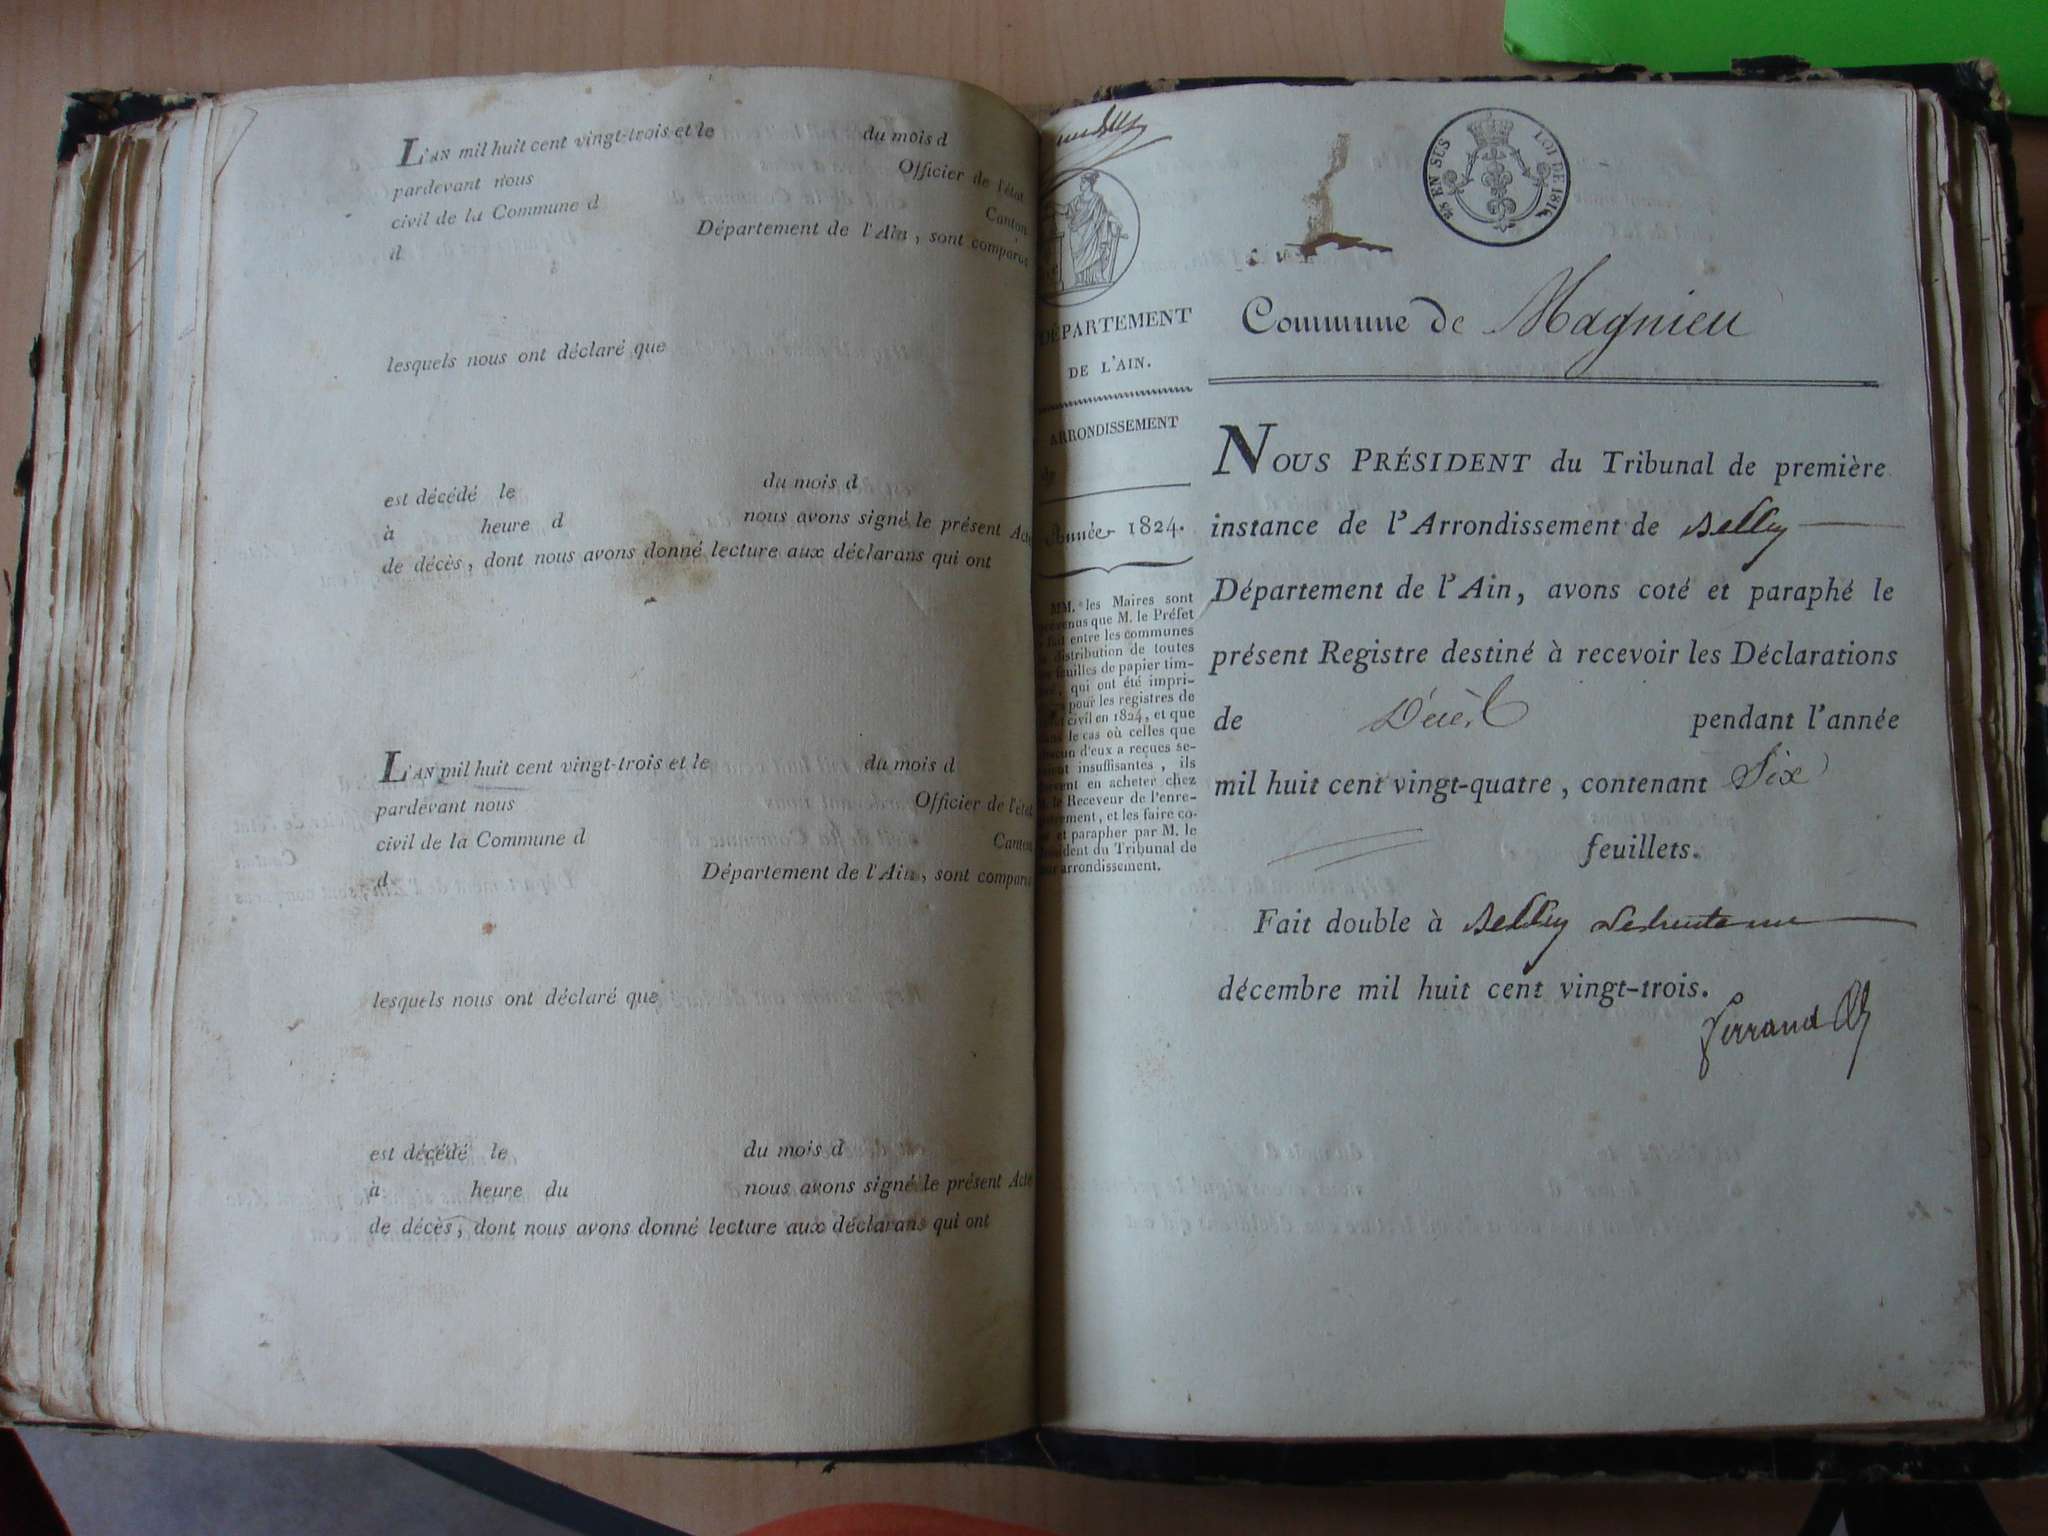 L'AN mil huit cent vingt-trois et le du mois d
pardevant nous Officier de l'état
civil de la Commune d Canton
d Département de l'Ain, sont comparus
lesquels nous ont déclaré que
est décédé le du mois d
à heure d nous avons signé le présent Acte
de décès, dont nous avons donné lecture aux déclarans qui ont
L'AN mil huit cent vingt-trois et le du mois d
pardevant nous Officier de l'état
civil de la Commune d Canton
d Département de l'Ain, sont comparus
lesquels nous ont déclaré que
est décédé le du mois d
à heure du nous avons signé le présent Acte
de décès, dont nous avons donné lecture aux déclarans qui ont
DÉPARTEMENT
DE L'AIN.
ARRONDISSEMENT
de
Année 1824.
MM. les Maires sont
que M. le Préfet
fait entre les communes
distribution de toutes
feuilles de papier tim-
qui ont été impri-
pour les registres de
civil en 1824, et que
le cas où celles que
d'eux a reçues se-
insuffisantes, ils
en acheter chez
le Receveur de l'enre-
et les faire co-
et parapher par M. le
du Tribunal de
arrondissement.
EN SUS LOI DE 1816
Commune de Magnieu
NOUS PRÉSIDENT du Tribunal de première
instance de l'Arrondissement de Belley
Département de l'Ain, avons coté et paraphé le
présent Registre destiné à recevoir les Déclarations
de Décès pendant l'année
mil huit cent vingt-quatre, contenant Six
feuillets.
Fait double à Belley
décembre mil huit cent vingt-trois.
Ferrand